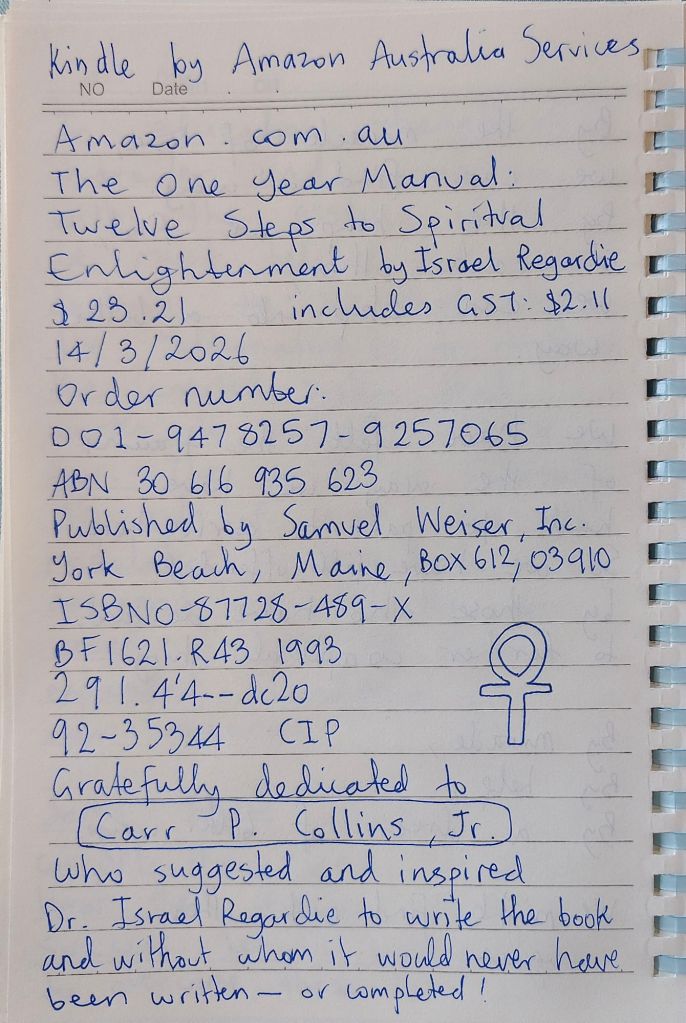 Kindle by Amazon Australia Services
NO Date
Amazon.com.au
The One Year Manual:
Twelve Steps to Spiritual
Enlightenment by Israel Regardie
$23.21 includes GST: $2.11
14/3/2026
Order number:
D01-9478257-9257065
ABN 30 616 935 623
Published by Samuel Weiser, Inc.
York Beach, Maine, BOX 612, 03910
ISBN 0-87728-489-X
BF1621.R43 1993
291.4'4--dc20
92-35344 CIP
Gratefully dedicated to
Carr P. Collins, Jr.
who suggested and inspired
Dr. Israel Regardie to write the book
and without whom it would never have
been written — or completed!